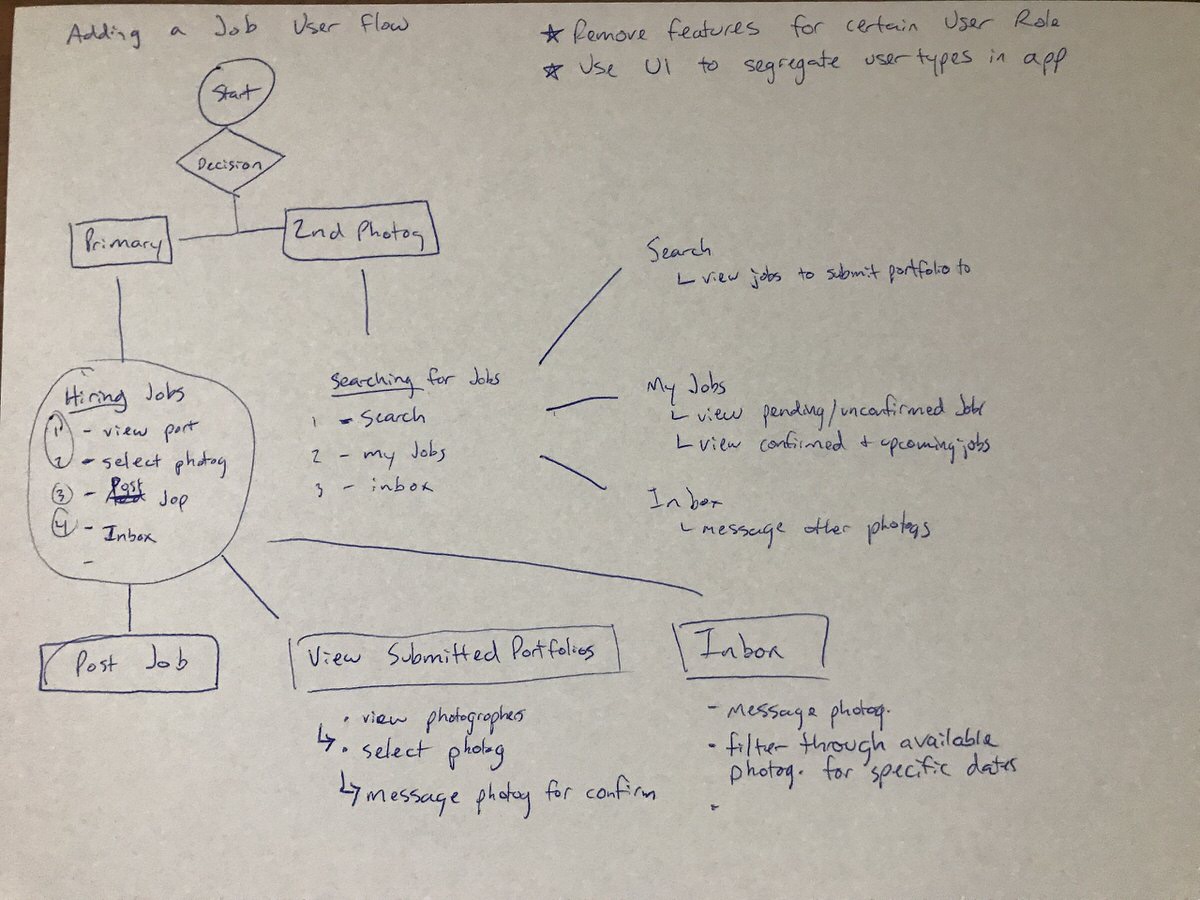 Adding a Job User Flow
★ Remove features for certain User Role
★ Use UI to segregate user types in app
Start
Decision
Primary
2nd Photog
Search
└ view jobs to submit portfolio to
Hiring Jobs
1 - view port
2 - select photog
3 - Post Jop
4 - Inbox
-
Searching for Jobs
1 - Search
2 - my Jobs
3 - inbox
My Jobs
└ view pending/unconfirmed Jobs
└ view confirmed + upcoming jobs
Inbox
└ message other photogs
Post Job
View Submitted Portfolios
• view photographers
↳ • select photog
↳ message photog for confirm
Inbox
- Message photog.
- filter through available
photog. for specific dates
-